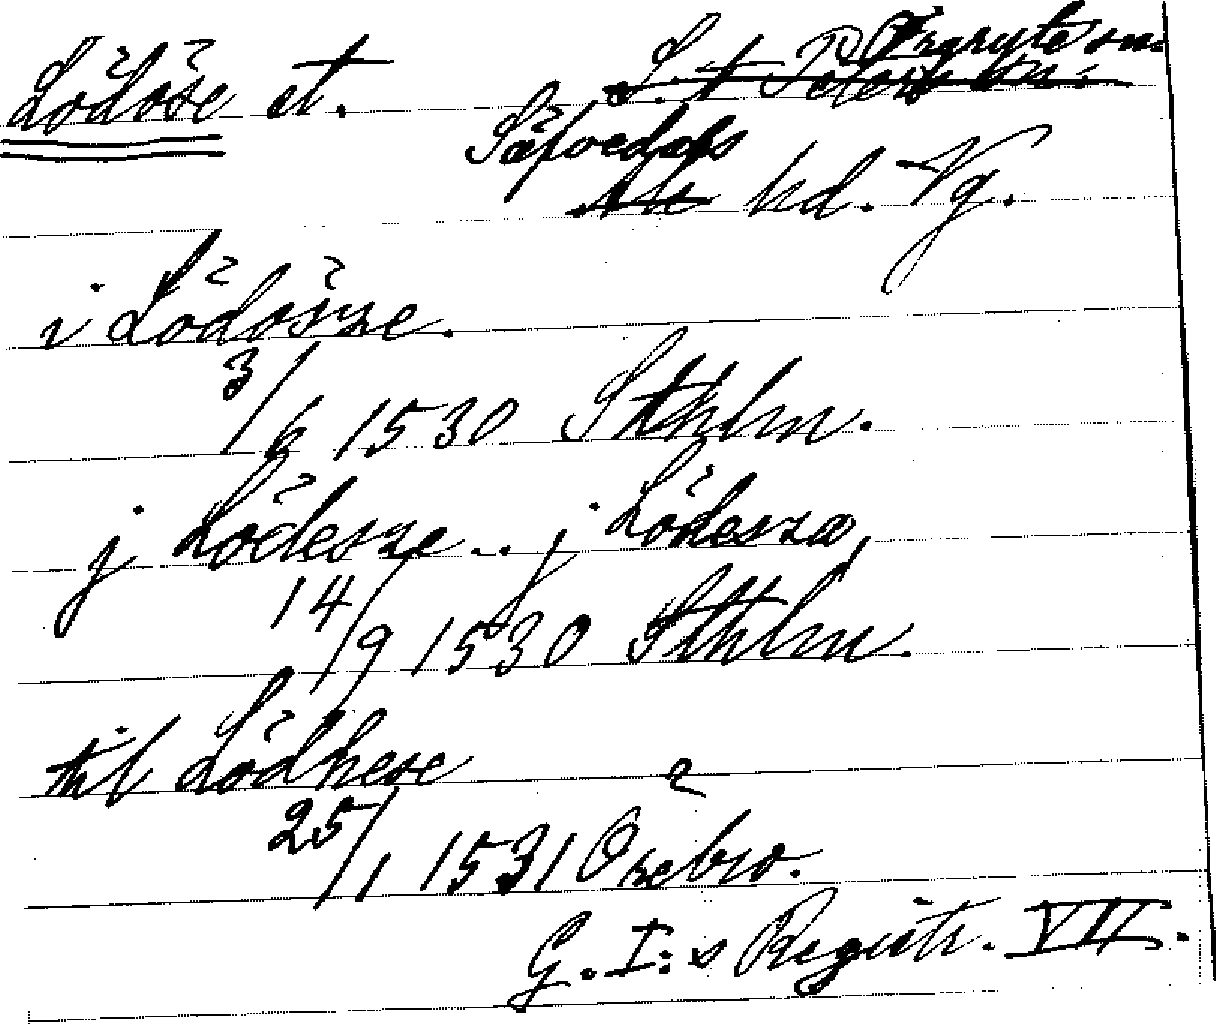 Lödöse st. Örgryte sn.
S:t Peders sn.
Säfvedals
Ale hd. Vg.
i Lödösze.
3/6 1530 Sthlm.
j Lödesze .. j Lödesza,
14/9 1530 Sthlm.
till Lödhese
25/1 1531 Örebro.
G. I:s Registr. VII.